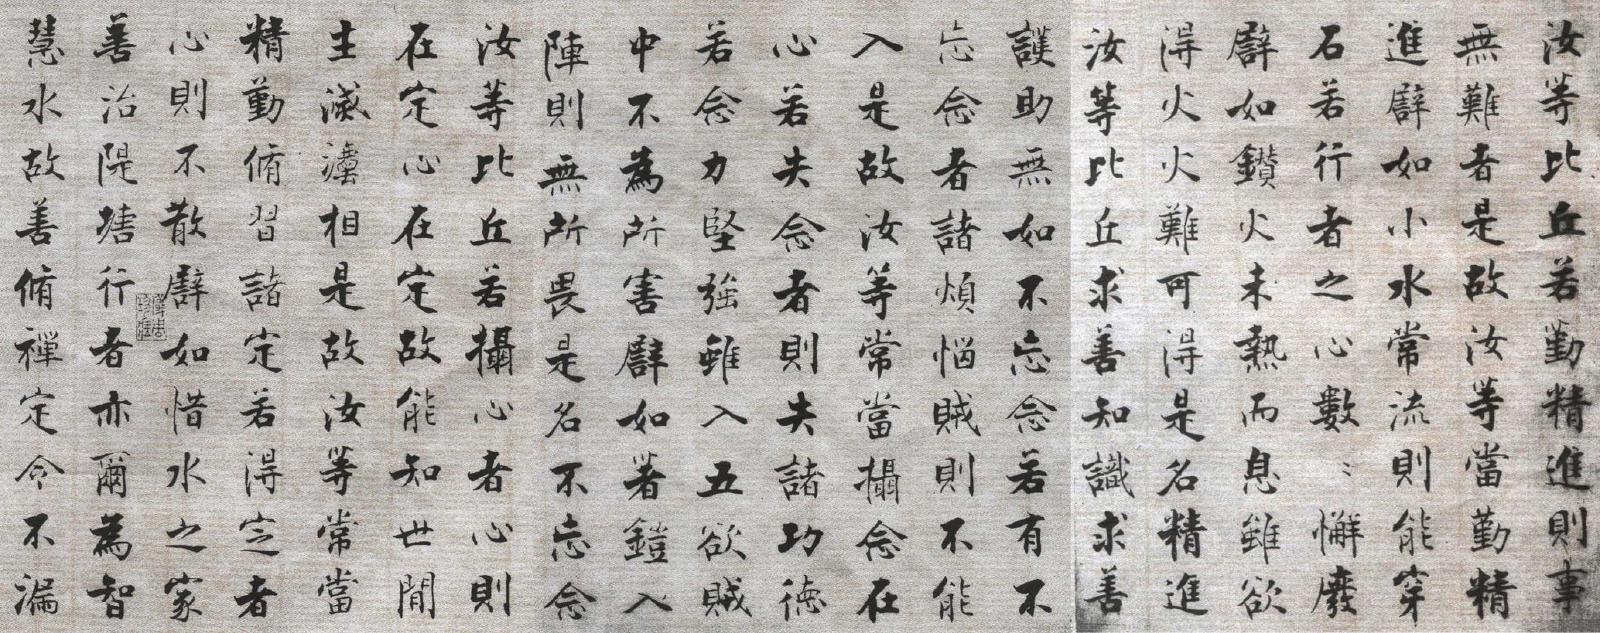 汝等比丘若勤精進則事
無難者是故汝等當勤精
進譬如小水常流則能穿
石若行者之心數〻懈廢
譬如鑽火未熱而息雖欲
得火火難可得是名精進
汝等比丘求善知識求善
護助無如不忘念若有不
忘念者諸煩惱賊則不能
入是故汝等常當攝念在
心若失念者則失諸功德
若念力堅強雖入五欲賊
中不為所害譬如著鎧入
陣則無所畏是名不忘念
汝等比丘若攝心者心則
在定心在定故能知世間
生滅灋相是故汝等常當
精勤脩習諸定若得定者
心則不散譬如惜水之家
善治隄塘行者亦爾為智
慧水故善脩禪定令不漏